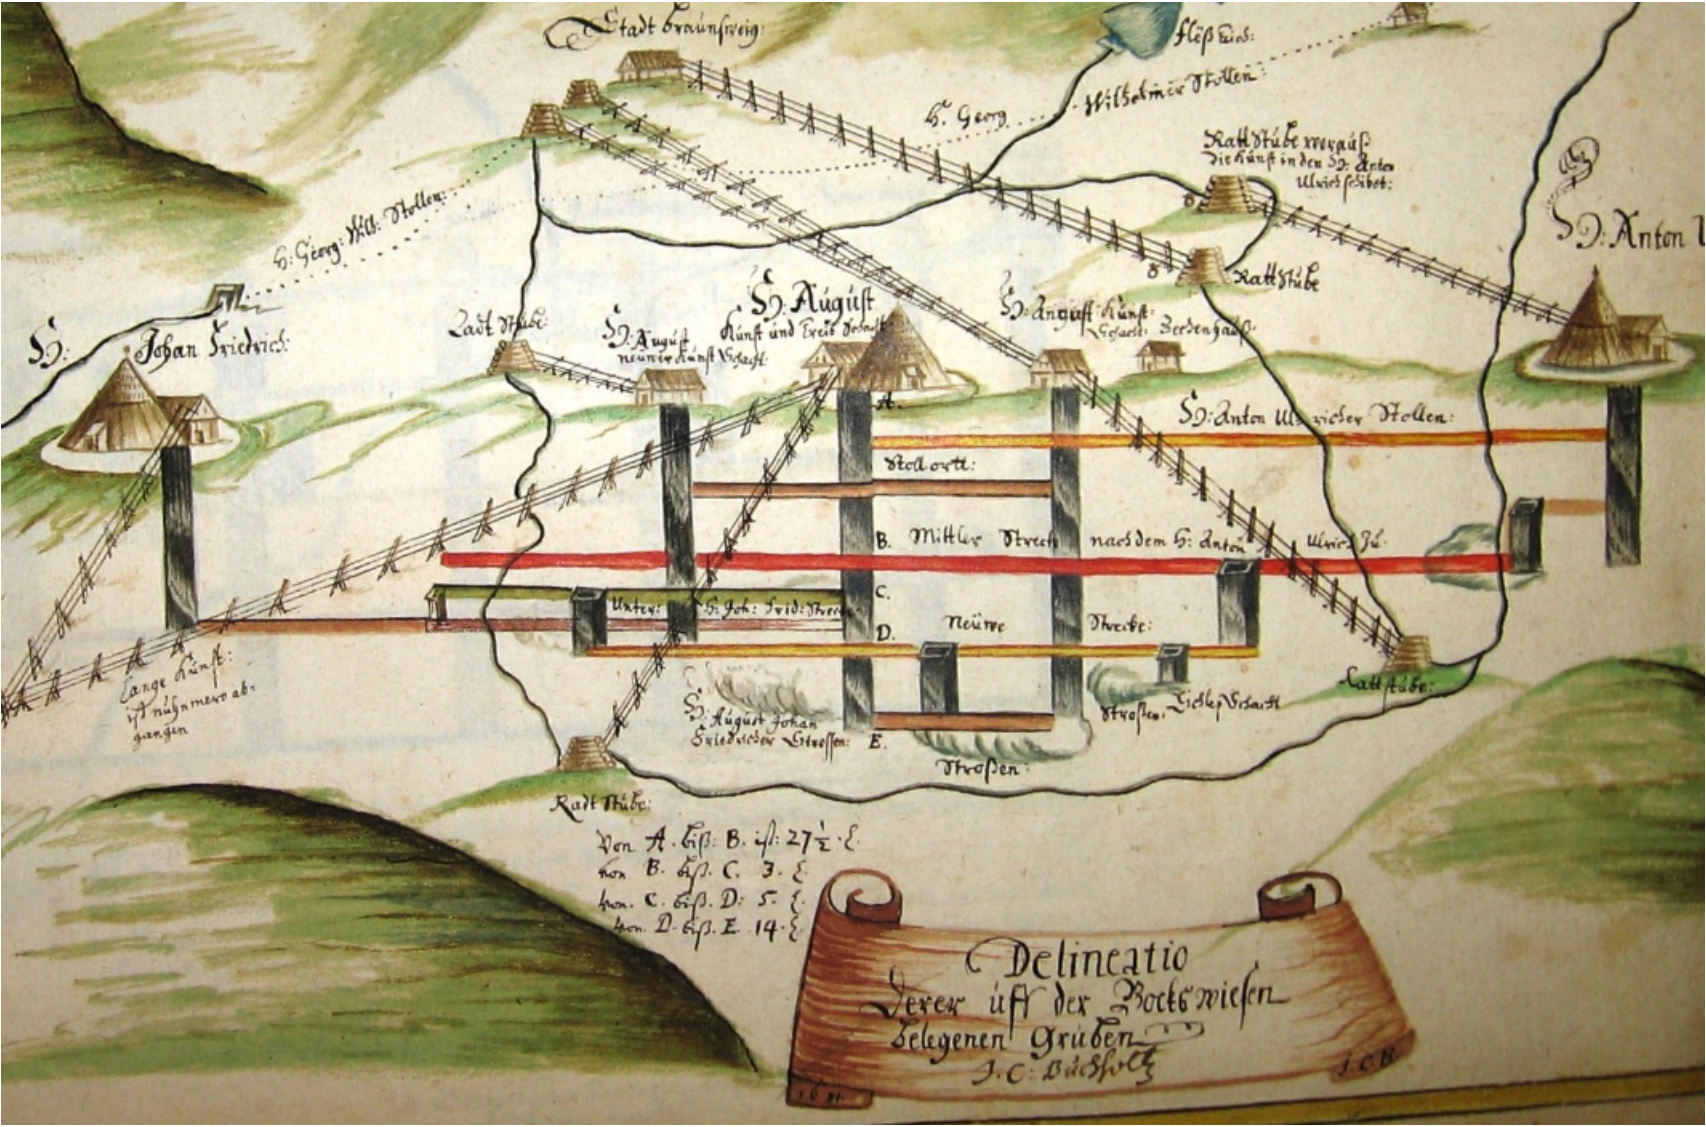 Stadt braunsweig:
H. Georg
Wilhelmer Stollen
Radt Stube worauß
die Kunst in den H. Anton
Ulrich schibet:
H: Georg: Wilh: Stollen:
H: Anton U
Radt Stube
H: Johan Friedrich:
Radt Stube:
H: August
neuwer Kunst Schacht:
H: August
Kunst und Treib Schacht
H: August Kunst:
Schacht: Zechenhauß
A.
H: Anton Ulricher Stollen:
Stollortt:
B. Mittler Strecke nach dem H: Anton Ulrich Zu.
C.
Unter: H: Joh: Frid: Strecke
D.
Neuwe Strecke:
Lange Kunst:
ist nuhnmero ab-
gangen
H: August Johan
Friedricher Strossen:
E.
Stroßen:
Stroßen:
Schacht
Radtstube:
Radt Stube:
Von A. biß: B. ist: 27 1/2.
von B. biß. C. 3.
von. C. biß. D: 5.
von D. biß. E. 14.
Delineatio
derer uff der Bockswiesen
belegenen Gruben
J. C: Buchholtz
J. C. B.